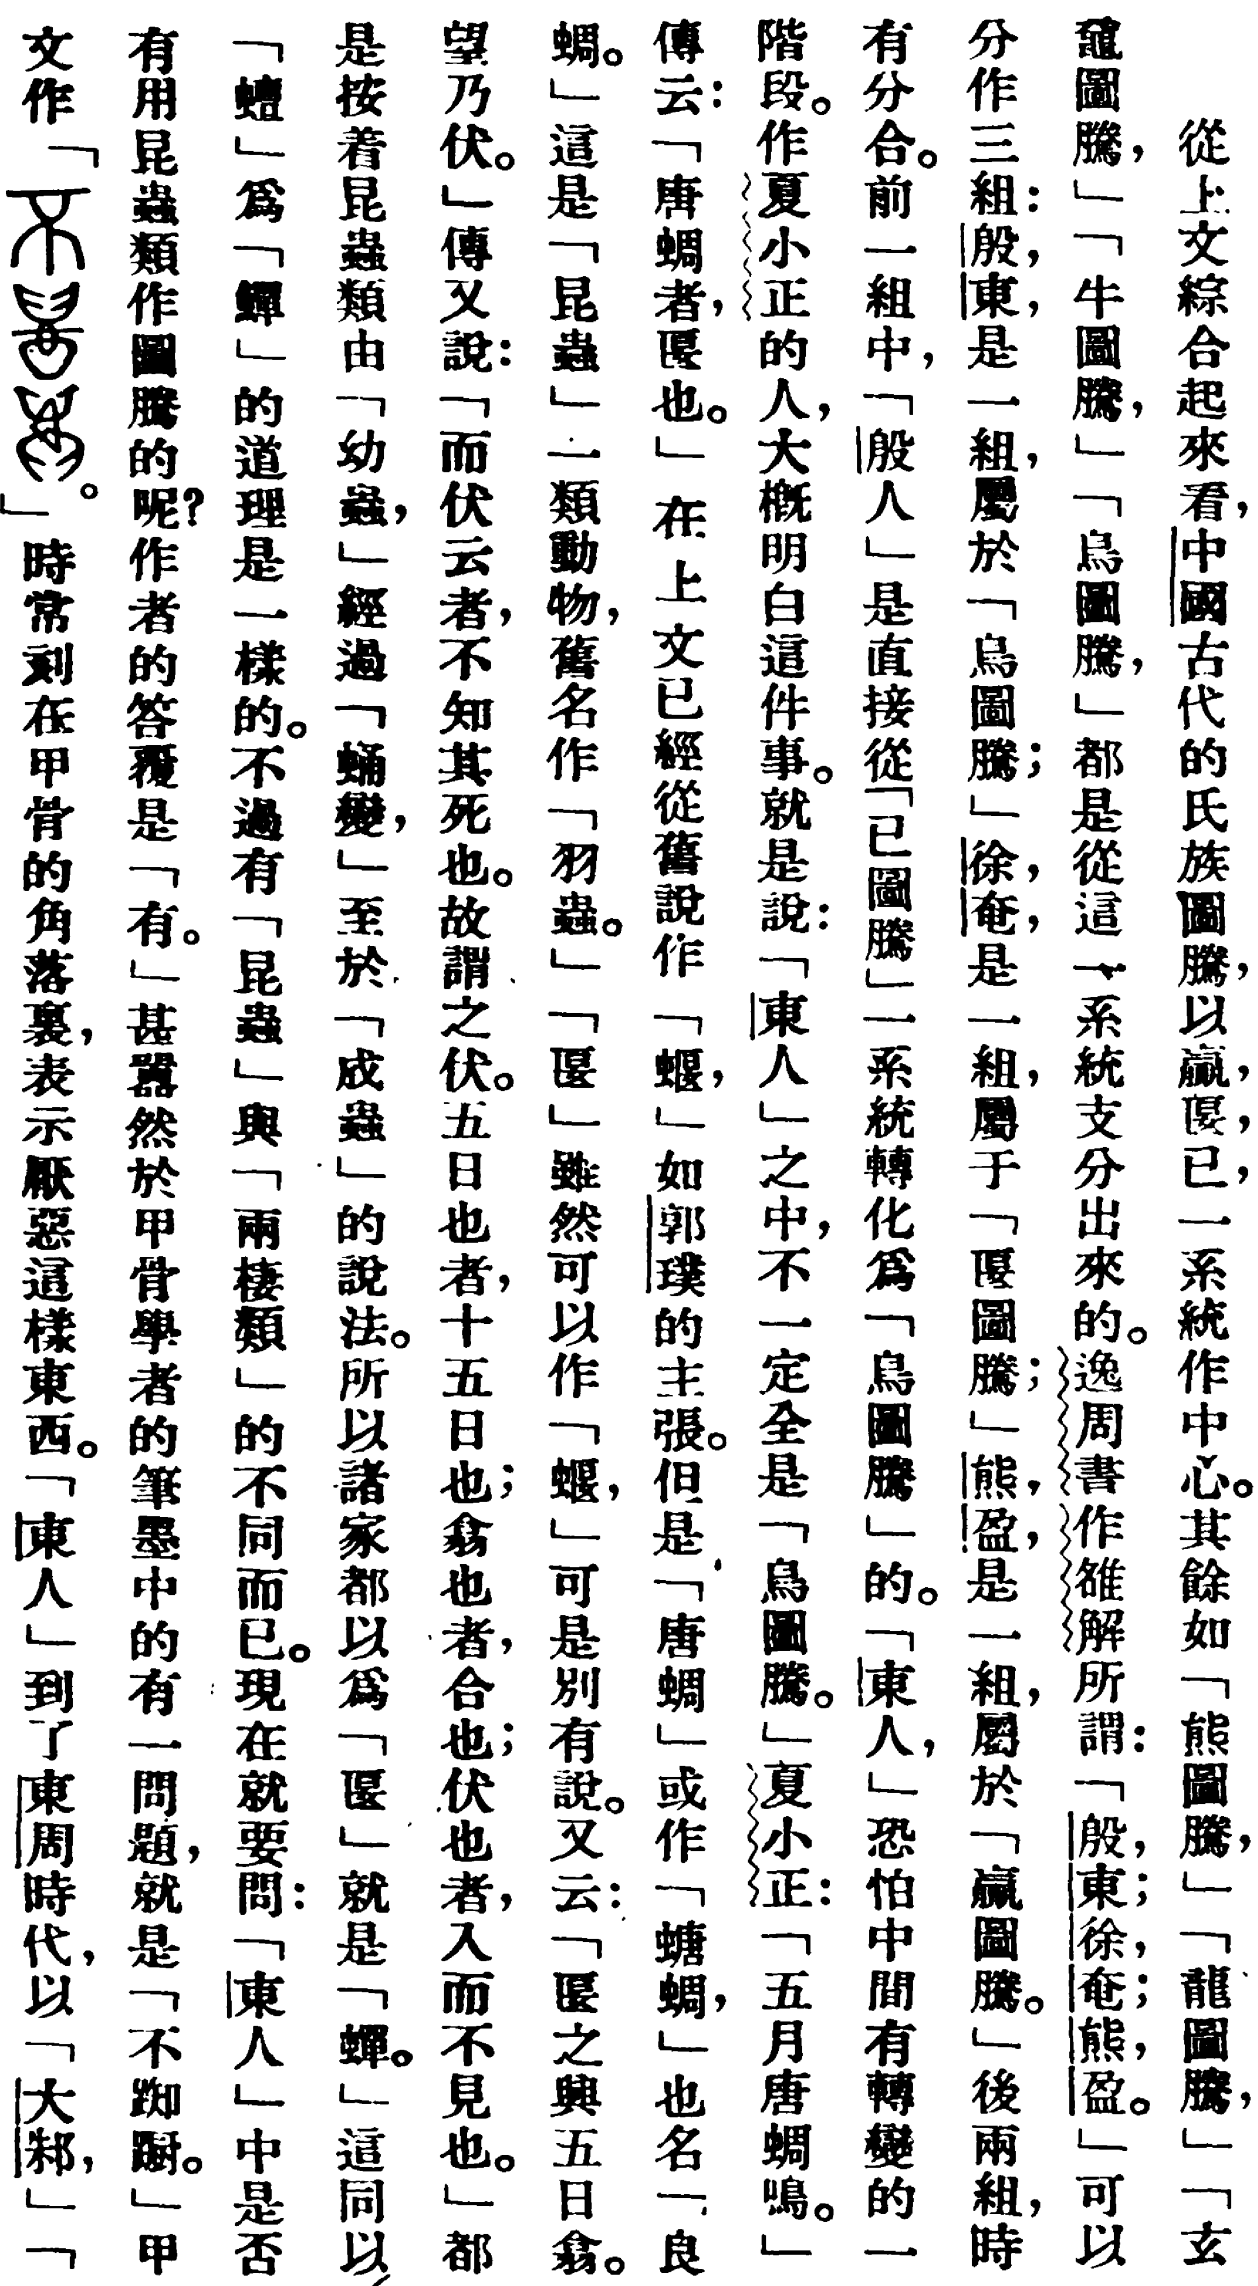 從上文綜合起來看，中國古代的氏族圖騰，以嬴，匽，已，一系統作中心。其餘如「熊圖騰，」「龍圖騰，」「玄
黿圖騰，」「牛圖騰，」「鳥圖騰，」都是從這一系統支分出來的。逸周書作雒解所謂：「殷，東；徐，奄；熊，盈。」可以
分作三組：殷，東，是一組，屬於「鳥圖騰；」徐，奄，是一組，屬于「匽圖騰；」熊，盈，是一組，屬於「嬴圖騰。」後兩組，時
有分合。前一組中，「殷人」是直接從「已圖騰」一系統轉化爲「鳥圖騰」的。「東人，」恐怕中間有轉變的一
階段。作夏小正的人，大概明白這件事。就是說：「東人」之中，不一定全是「鳥圖騰。」夏小正：「五月唐蜩鳴。」
傳云：「唐蜩者，匽也。」在上文已經從舊說作「蝘，」如郭璞的主張。但是「唐蜩」或作「螗蜩，」也名「良
蜩。」這是「昆蟲」一類動物，舊名作「羽蟲。」「匽」雖然可以作「蝘，」可是別有說。又云：「匽之興五日翕。
望乃伏。」傳又說：「而伏云者，不知其死也。故謂之伏。五日也者，十五日也；翕也者，合也；伏也者，入而不見也。」都
是按着昆蟲類由「幼蟲，」經過「蛹變，」至於「成蟲」的說法。所以諸家都以爲「匽」就是「蟬。」這同以
「蟺」爲「鱓」的道理是一樣的。不過有「昆蟲」與「兩棲類」的不同而已。現在就要問：「東人」中是否
有用昆蟲類作圖騰的呢？作者的答覆是「有。」甚囂然於甲骨學者的筆墨中的有一問題，就是「不踟躕。」甲
文作「。」時常刻在甲骨的角落裏，表示厭惡這樣東西。「東人」到了東周時代，以「大邾，」「